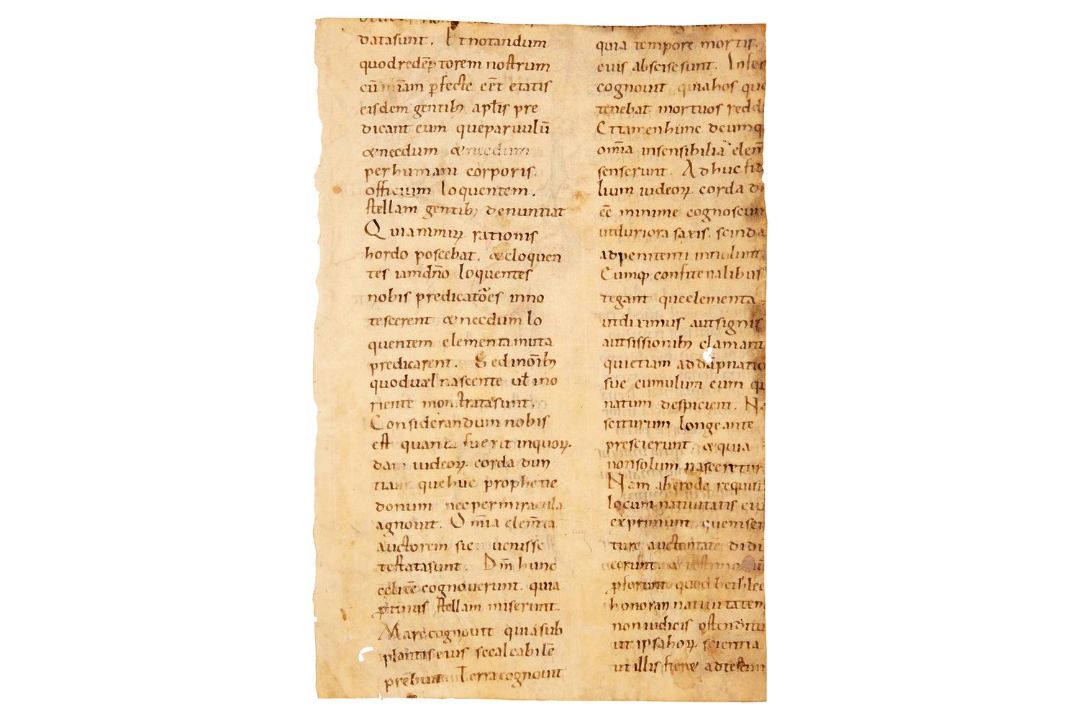 datasunt. Et notandum
quod redēptorem nostrum
cū iam pfecte eēt etatis
eisdem gentibꝫ apłis pre
dicant eum que parvulū
& necdum & necdum
per humani corporis.
officium loquentem.
stellam gentibꝫ denuntiat
Quia nimirꝝ rationis
hordo poscebat. & eloquen
tes iamdn̄o loquentes
nobis predicatōes inno
tescerent & necdum lo
quentem elementa muta
predicarent. Sed inom̄ibꝫ
quod uał nascente uł mo
riente monstrata sunt.
Considerandum nobis
est quanta fuerit inquorꝝ
dam iudeorꝝ corda duri
tiam que huc prophetie
donum nec per miracula
agnouit. Om̄ia elem̄ta
auctorem sic uenisse
testata sunt. Dm̄ hunc
cęli eē cognouerunt. quia
ptinus stellam miserunt.
Mare cognouit quia sub
plantis eius se calcabilē
prebuit. Terra cognouit
quia tempore mortis.
eius abscise sunt. Infer
cognouit quia hos quo
tenebat mortuos redd
Et tamen hunc deum q
om̄ia insensibilia elem̄
senserunt. Adhuc fid
lium iudeorꝝ corda d
eē minime cognoscun
ut duriora saxis. scinda
ad penitenti int nolunt
Cumq confite nalibus
tegant que elementa
ut diximus aut signis
aut sissionibꝫ clamant
qui etiam ad dāpnatio
sue cumulum eum q
natum despiciunt. Na
sciturum longe ante
prescierunt. & quia
non solum nasceretur
Nam ab erode requisi
locum natiuitatis eiu
exprimunt. quem scri
ture auctoritate didi
cerunt. & testimo
pferunt quod bethlee
honorari natiuitatem
non iudicis ostenditu
ut ipsahorꝝ scientia
ut illis fieret ad testim